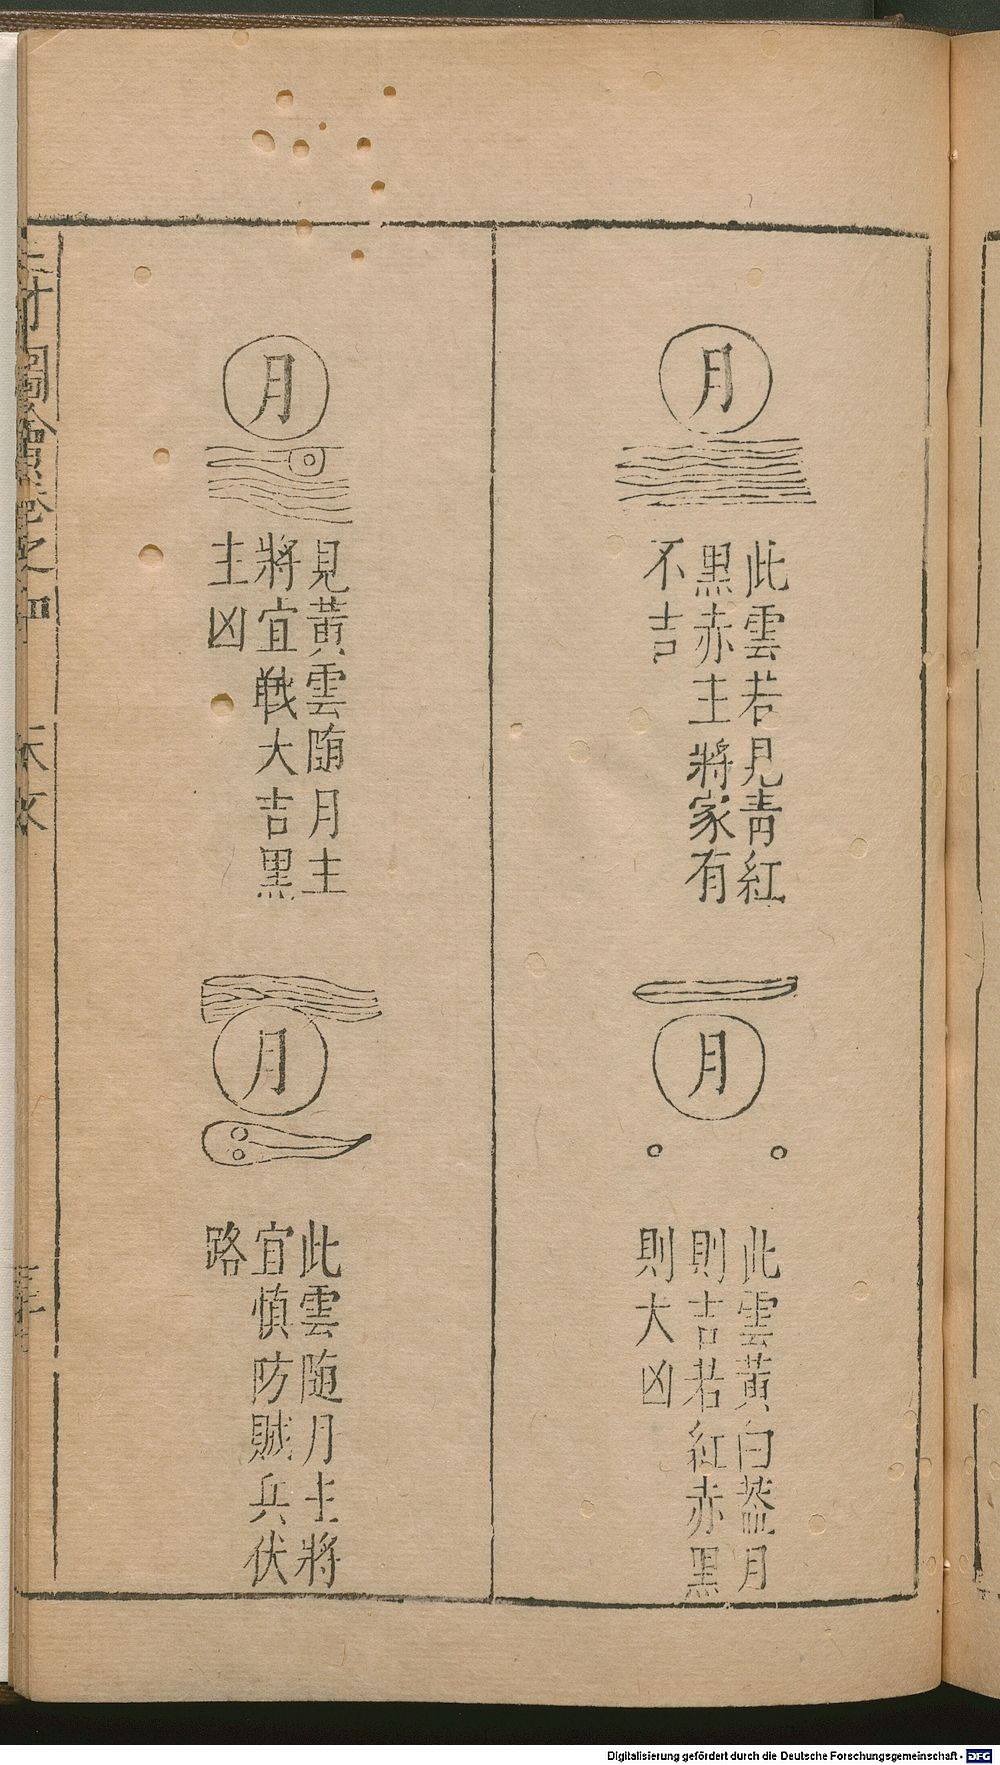 月
此雲若見青紅
黒赤主將家有
不吉
月
此雲黃白蓋月
則吉若紅赤黒
則大凶
月
見黃雲隨月主
將宜戰大吉黒
主凶
月
此雲随月主將
宜慎防賊兵伏
路
圖會卷之四
Digitalisierung gefördert durch die Deutsche Forschungsgemeinschaft - DFG